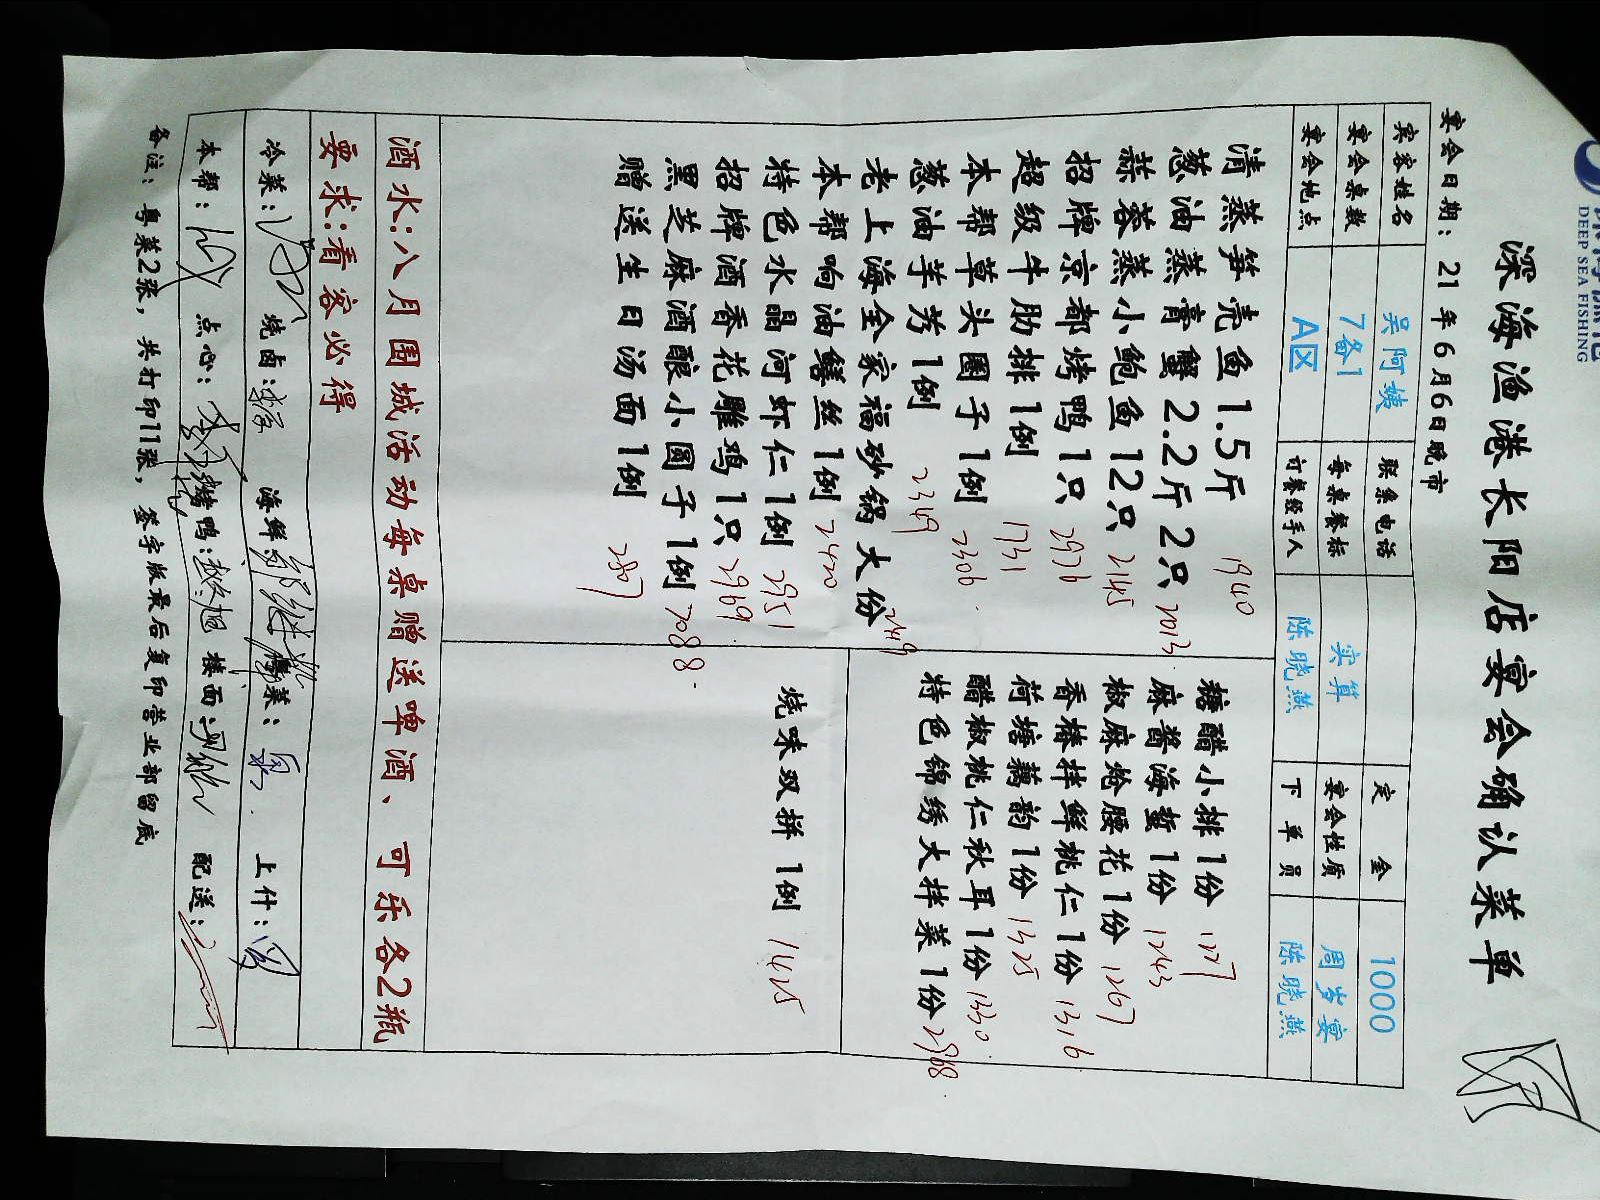 DEEP SEA FISHING
深海渔港长阳店宴会确认菜单
宴会日期：21年6月6日晚市
宾客姓名 吴阿姨 联系电话 定金 1000
宴会桌数 7备1 每桌餐标 实算 宴会性质 周岁宴
宴会地点 A区 订餐经手人 陈晓燕 下单员 陈晓燕
清蒸笋壳鱼1.5斤 1940
葱油蒸膏蟹2.2斤2只 2013
蒜蓉蒸小鲍鱼12只 2145
招牌京都烤鸭1只 2976
超级牛肋排1例 1731
本帮草头圈子1例 2306
葱油芋艿1例 2349
老上海全家福砂锅大份 2419
本帮响油鳝丝1例 2420
特色水晶河虾仁1例 2951
招牌酒香花雕鸡1只 2969
黑芝麻酒酿小圆子1例 7088
赠送生日汤面1例 2807
糖醋小排1份 1227
麻酱海蜇1份 1243
椒麻炝腰花1份 1267
香椿拌鲜桃仁1份 1316
荷塘藕韵1份 1325
醋椒桃仁秋耳1份 1330
特色锦绣大拌菜1份 2968
烧味双拼1例 1425
酒水:八月围城活动每桌赠送啤酒、可乐各2瓶
要求:看客必得
冷菜: 烧卤: 海鲜 菜: 上什:
本帮: 点心: 烤鸭: 楼面 配送:
备注：粤菜2张，共打印11张，签字版最后复印营业部留底